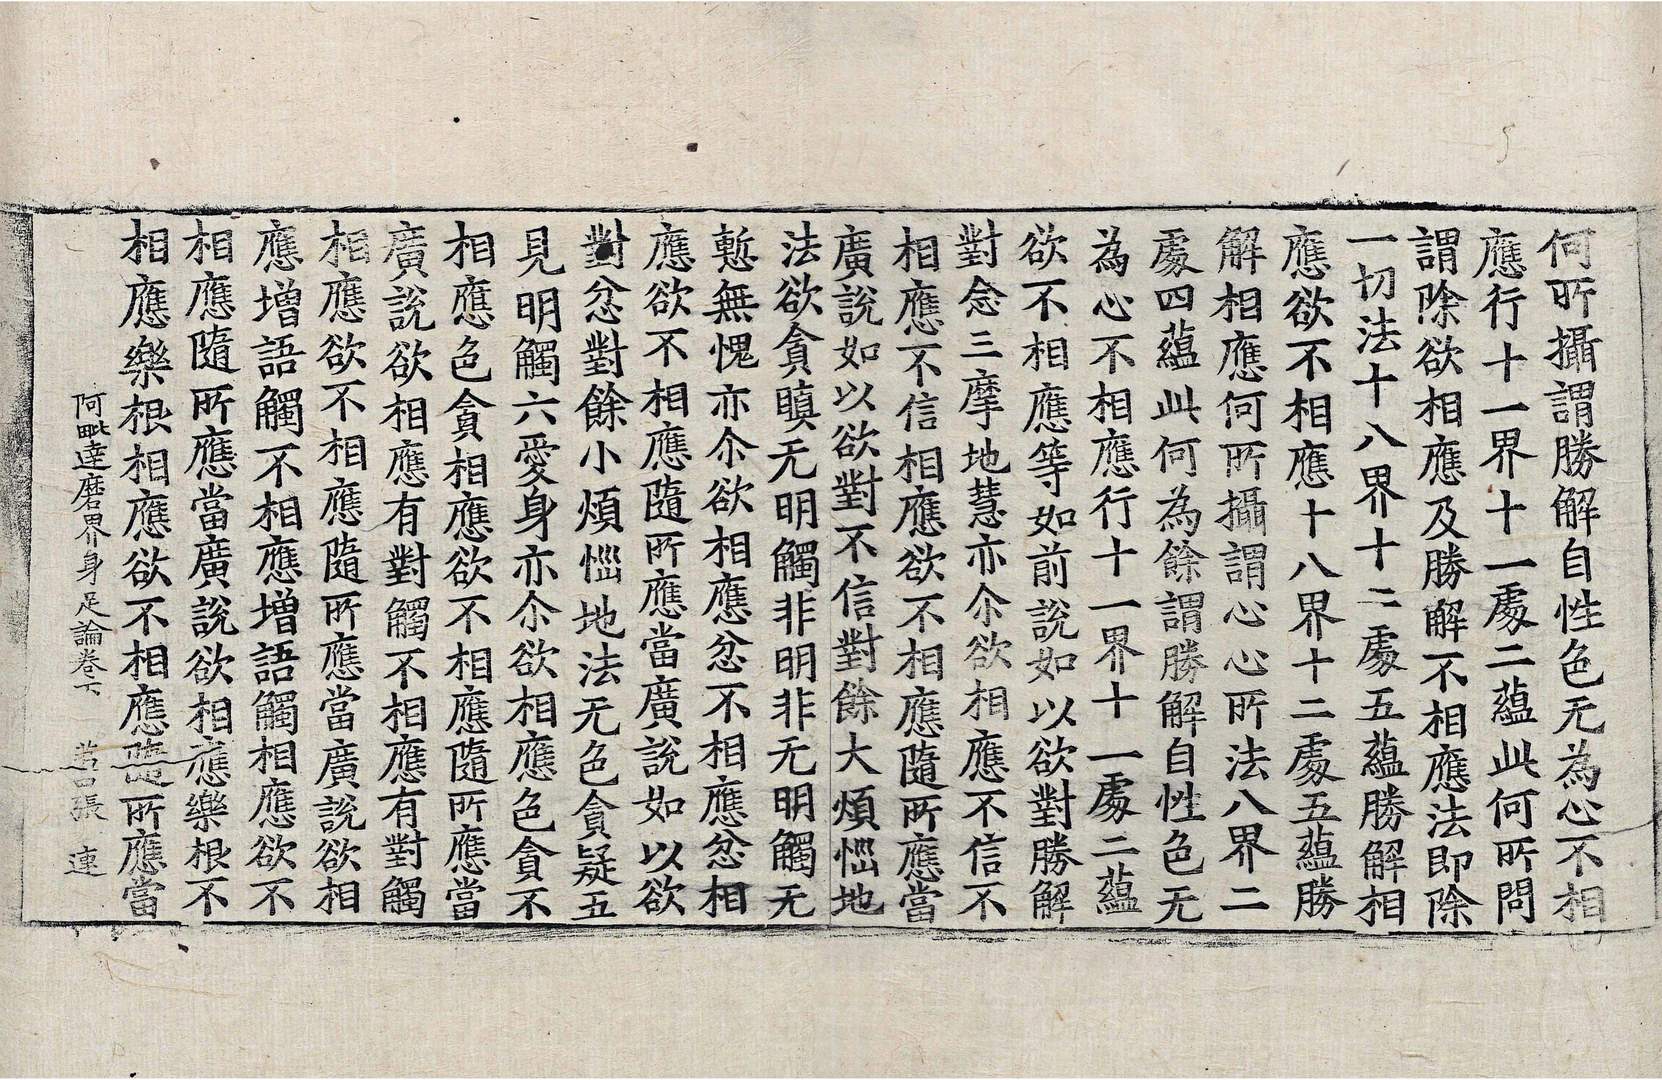 何所攝謂勝解自性色无為心不相
應行十一界十一處二蘊此何所問
謂除欲相應及勝解不相應法即除
一切法十八界十二處五蘊勝解相
應欲不相應十八界十二處五蘊勝
解相應何所攝謂心心所法八界二
處四蘊此何為餘謂勝解自性色无
為心不相應行十一界十一處二蘊
欲不相應等如前說如以欲對勝解
對念三摩地慧亦尒欲相應不信不
相應不信相應欲不相應隨所應當
廣說如以欲對不信對餘大煩惱地
法欲貪瞋无明觸非明非无明觸无
慙無愧亦尒欲相應忿不相應忿相
應欲不相應隨所應當廣說如以欲
對忿對餘小煩惱地法无色貪疑五
見明觸六愛身亦尒欲相應色貪不
相應色貪相應欲不相應隨所應當
廣說欲相應有對觸不相應有對觸
相應欲不相應隨所應當廣說欲相
應增語觸不相應增語觸相應欲不
相應隨所應當廣說欲相應樂根不
相應樂根相應欲不相應隨所應當
阿毗達磨界身足論卷下 苐四張 連